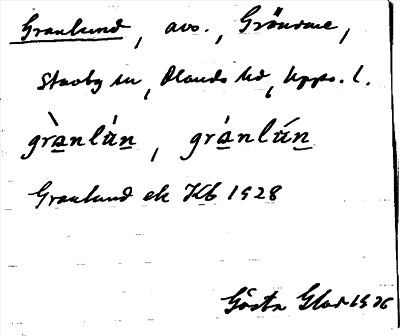 Granlund, avs., Gränome,
Stavby sn, Olands hd, Upps. l.
grànlùn, grànlún
Granlund ek Kb 1928
Gösta Glar 1926